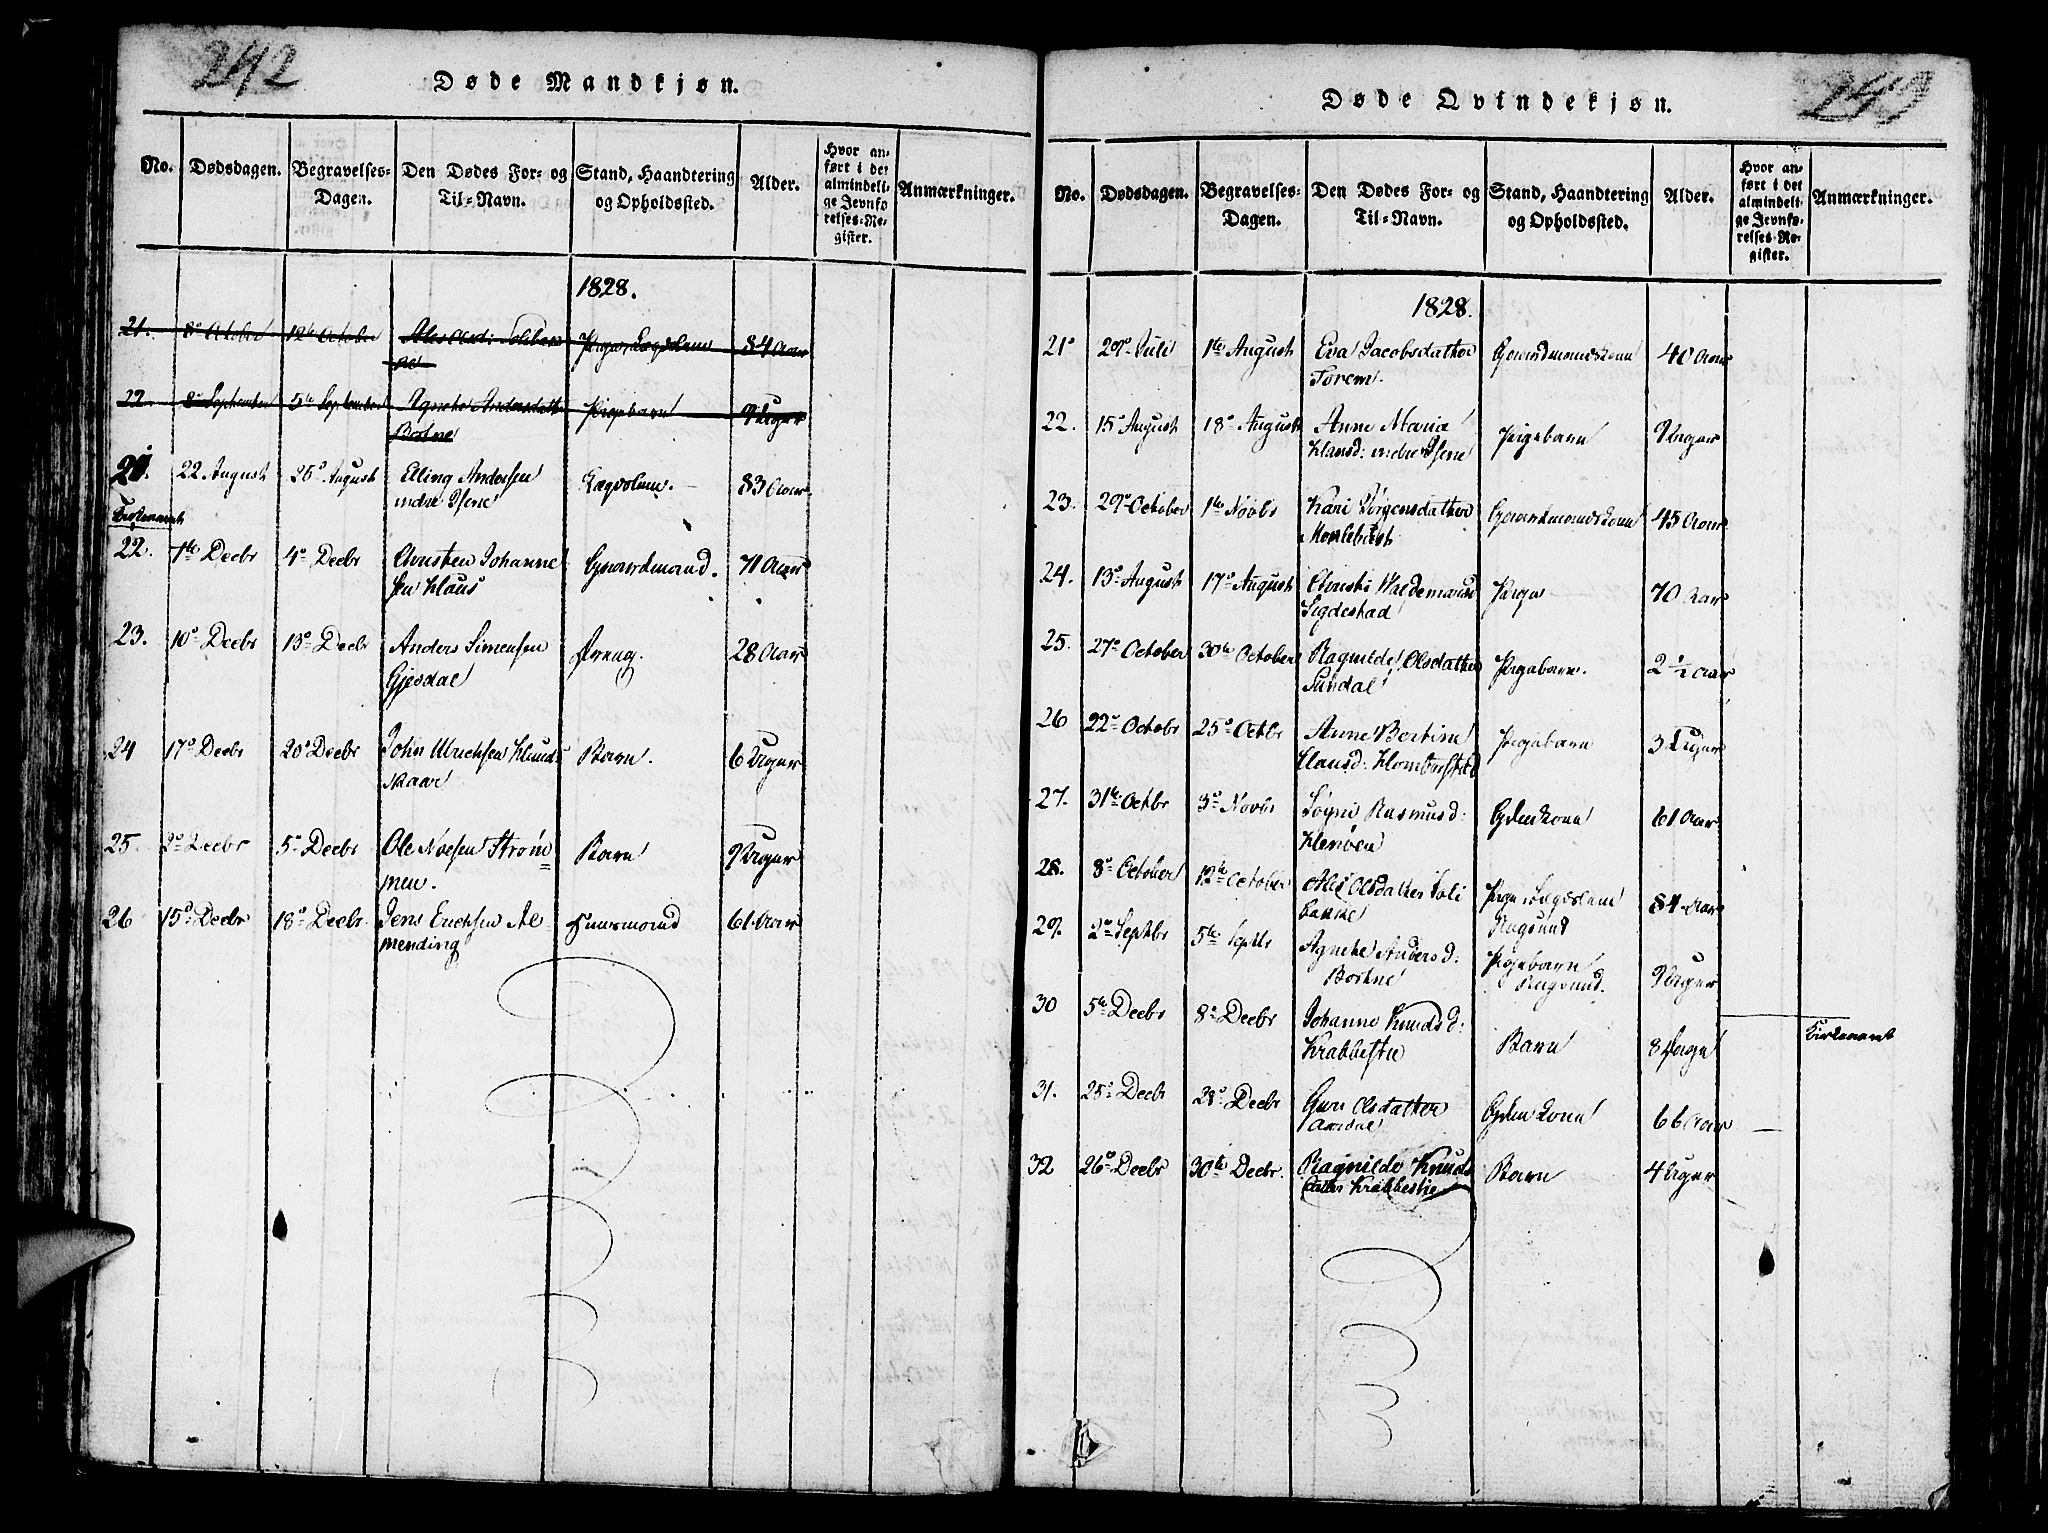 242
Døde Mandkjøn.
No. Dødsdagen. Begravelses-Dagen. Den Dødes For- og Til-Navn. Stand, Haandtering og Opholdssted. Alder. Hvor anført i det almindelige Jevnførelses-Register. Anmærkninger.
1828.
21. 8de October 12te October Ales Olsd: Solibakke Pige, Lægdslem 84 Aar
22. September 5te September Agnethe Andersdatter Bortne Pigebarn 9 Uger
21. 22 August 25de August Elling Andersen indre Isene Lægdslem. 83 Aar
22. 1te Decbr 4de Decbr Christen Johannesen Klaus Gaardmand. 71 Aar
23. 10de Decbr 13de Decbr Anders Simensen Gjesdal Dreng. 28 Aar
24 17de Decbr 20de Decbr John Ulrichsen Barn. 6 Uger
25. 2den Decbr 5te Decbr Ole Strømmen. Barn 9 Uger
26 15de Decbr 18de Decbr Jens Erichsen Almending Huusmand 61 Aar
Døde Qvindekjøn.
No. Dødsdagen. Begravelses-Dagen. Den Dødes For- og Til-Navn. Stand, Haandtering og Opholdssted. Alder. Hvor anført i det almindelige Jevnførelses-Register. Anmærkninger.
1828.
21de 29de Juli 1te August Eva Jacobsdatter Torem. Gaardmandskone 40 Aar
22. 15de August 18de August Anne Maria Hansd: indre Isene Pigebarn 9 Uger
23. 29de October 1te Novbr Kari Jørgensdatter Gaardmandskone 45 Aar
24. 13de August 17de August Christi Waldemarsd Sigdestad Pige 70 Aar
25. 27de October 30te October Ragnilde Olsdatter Sundal Pigebarn. 2 1/2 Aar
26 22de Octobr 25de Octbr Anne Bertine Hansd: Pigebarn 3 Uger
27. 31te Octbr 3de Novbr Søgni Rasmusd: 61 Aar
28. 8de October 12te October Ales Olsdatter Solibakke Pige Lægdslem Rugsund 84 Aar
29. 2den Septbr 5te Septbr Agnethe Andersd: Bortne Pigebarn Rugsund. 9 Uger
30 5te Decbr 8de Decbr Johanne Knudsd: Krabbestie Barn 8 Dage
31. 25de Decbr 28de Decbr Guri Olsdatter Aardal 66 Aar
32 26de Decbr 30te Decbr. Ragnilde Knudsdatter Krabbestie Barn 4 Uger